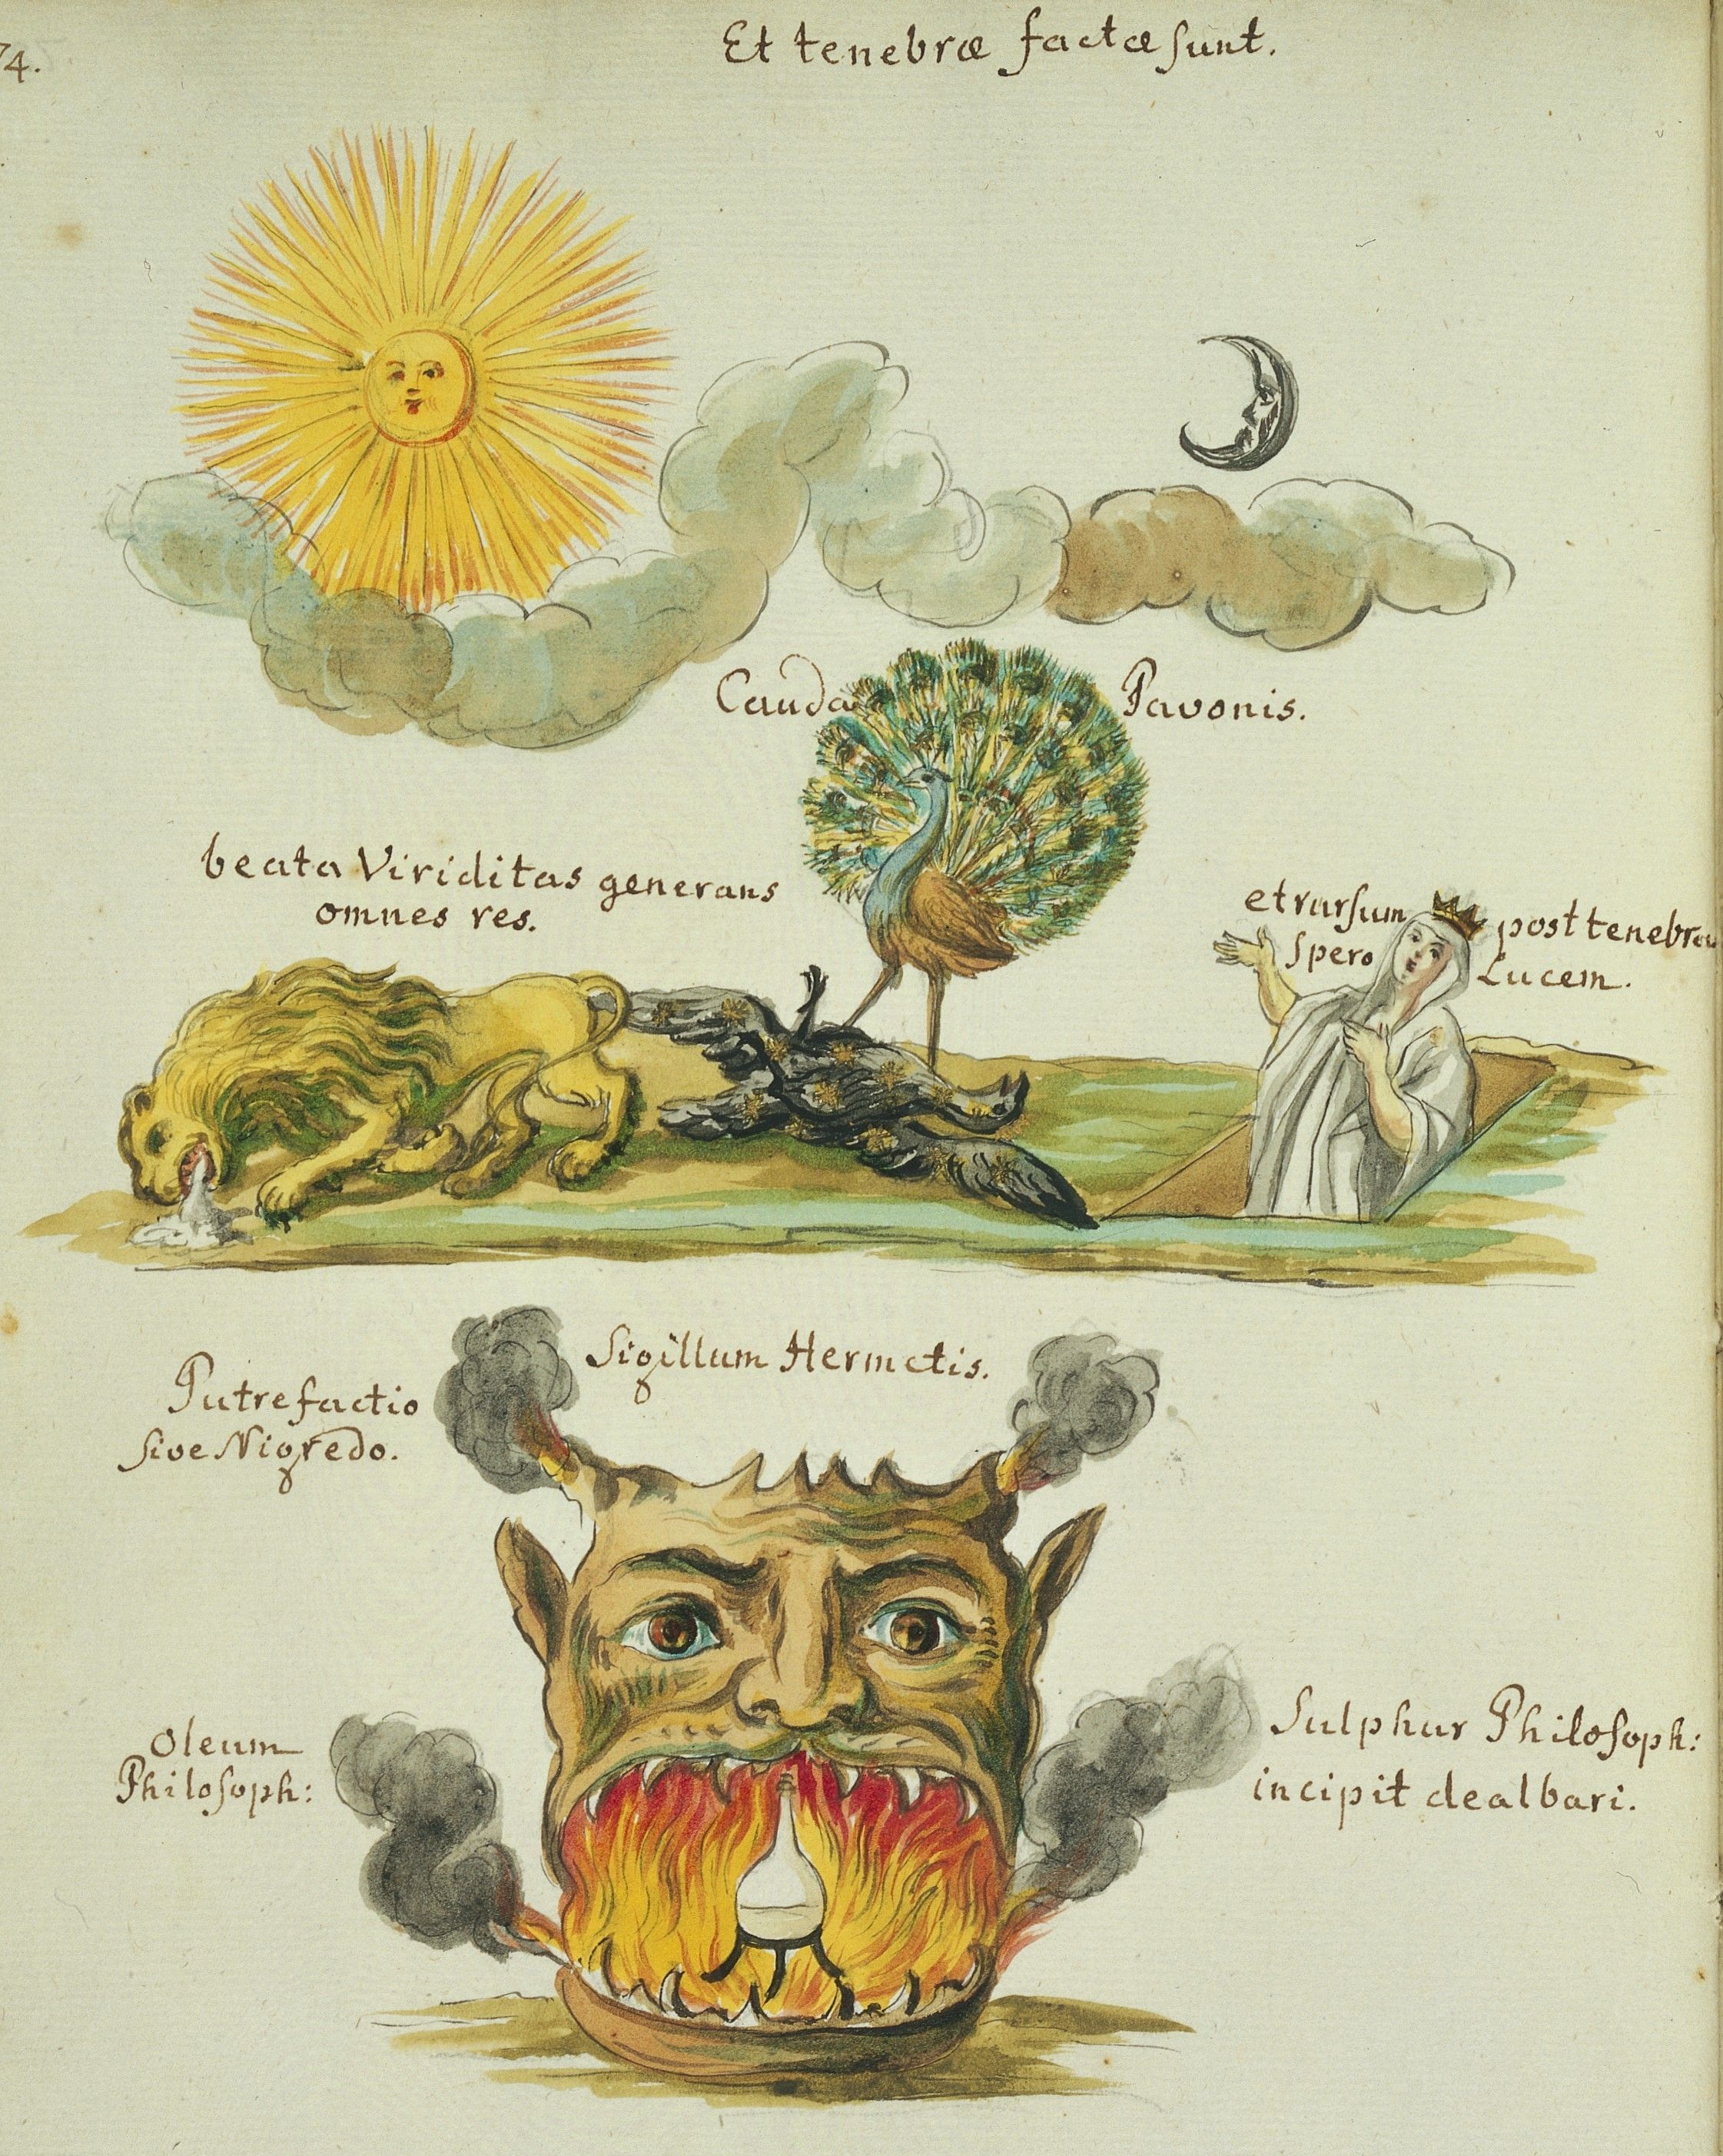 74.
Et tenebræ factæ sunt.
Cauda Pavonis.
beata Viriditas generans
omnes res.
et rursum
spero
post tenebras
Lucem.
Sigillum Hermetis.
Putrefactio
sive Nigredo.
Oleum
Philosoph:
Sulphur Philosoph:
incipit dealbari.